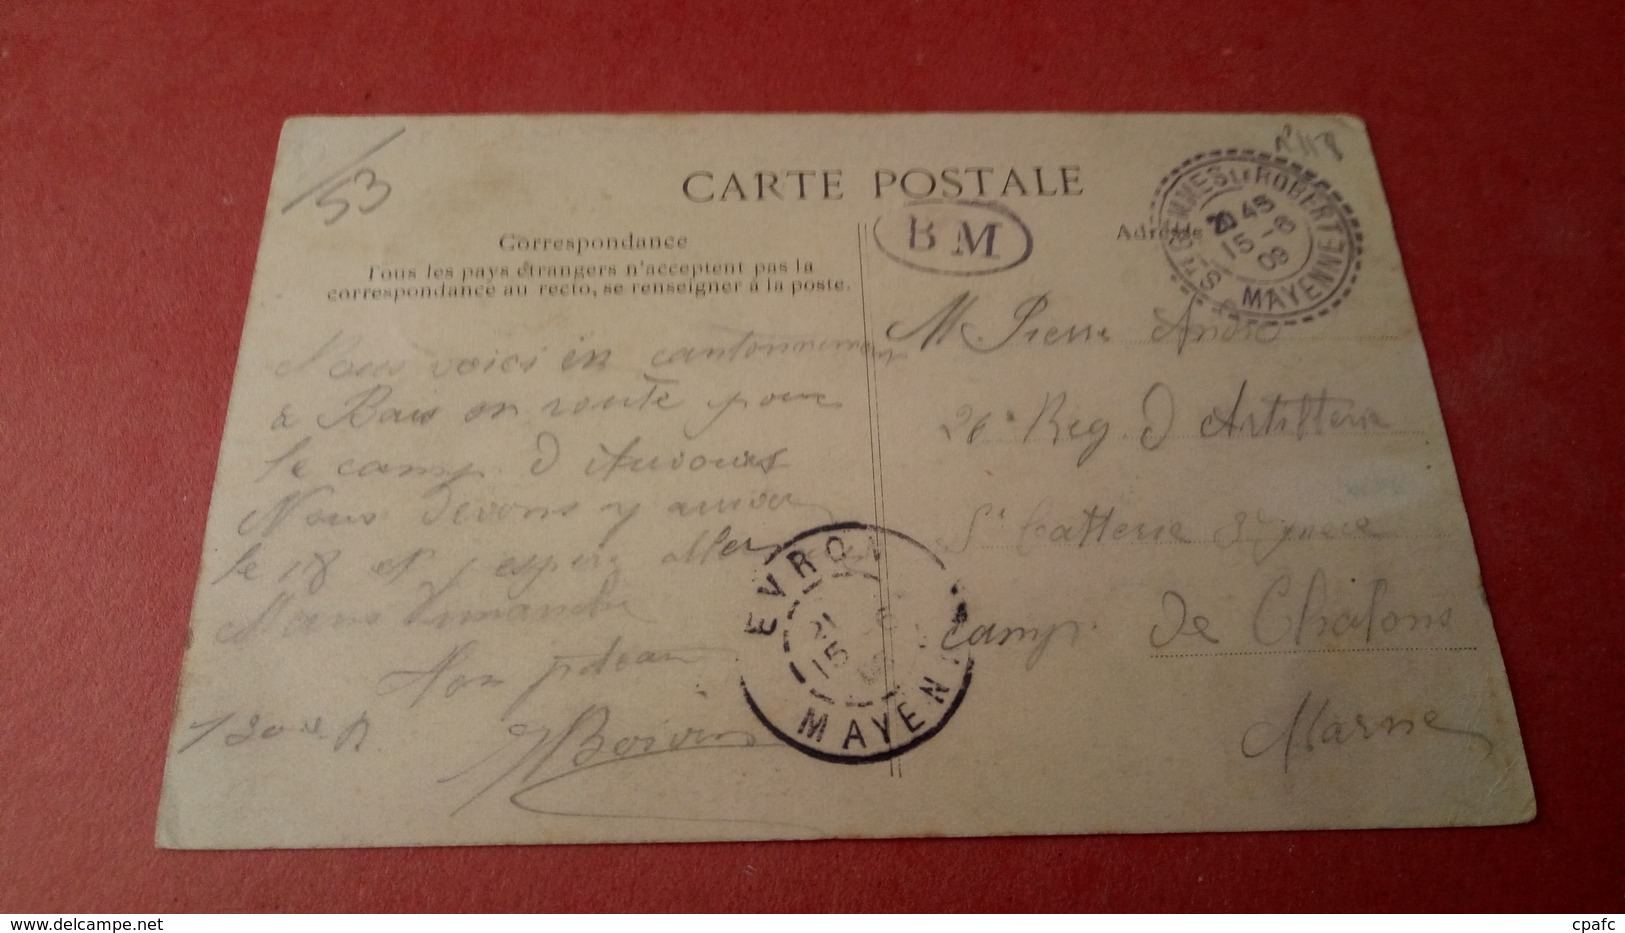 53
CARTE POSTALE
Correspondance
Tous les pays étrangers n'acceptent pas la
correspondance au recto, se renseigner à la poste.
Adresse
BM
STE GEMMES LE ROBERT
20 45
15 - 6
09
MAYENNE
Nous voici en cantonnement
à Bais en route pour
le camp d'Auvours
Nous devons y arriver
le 18 et j'espère aller
Mans Dimanche
130e
Boivin
EVRON
21
15
MAYENNE
M. Pierre André
26e Reg. d'Artillerie
5e batterie
camp. de Châlons
Marne
cpafc